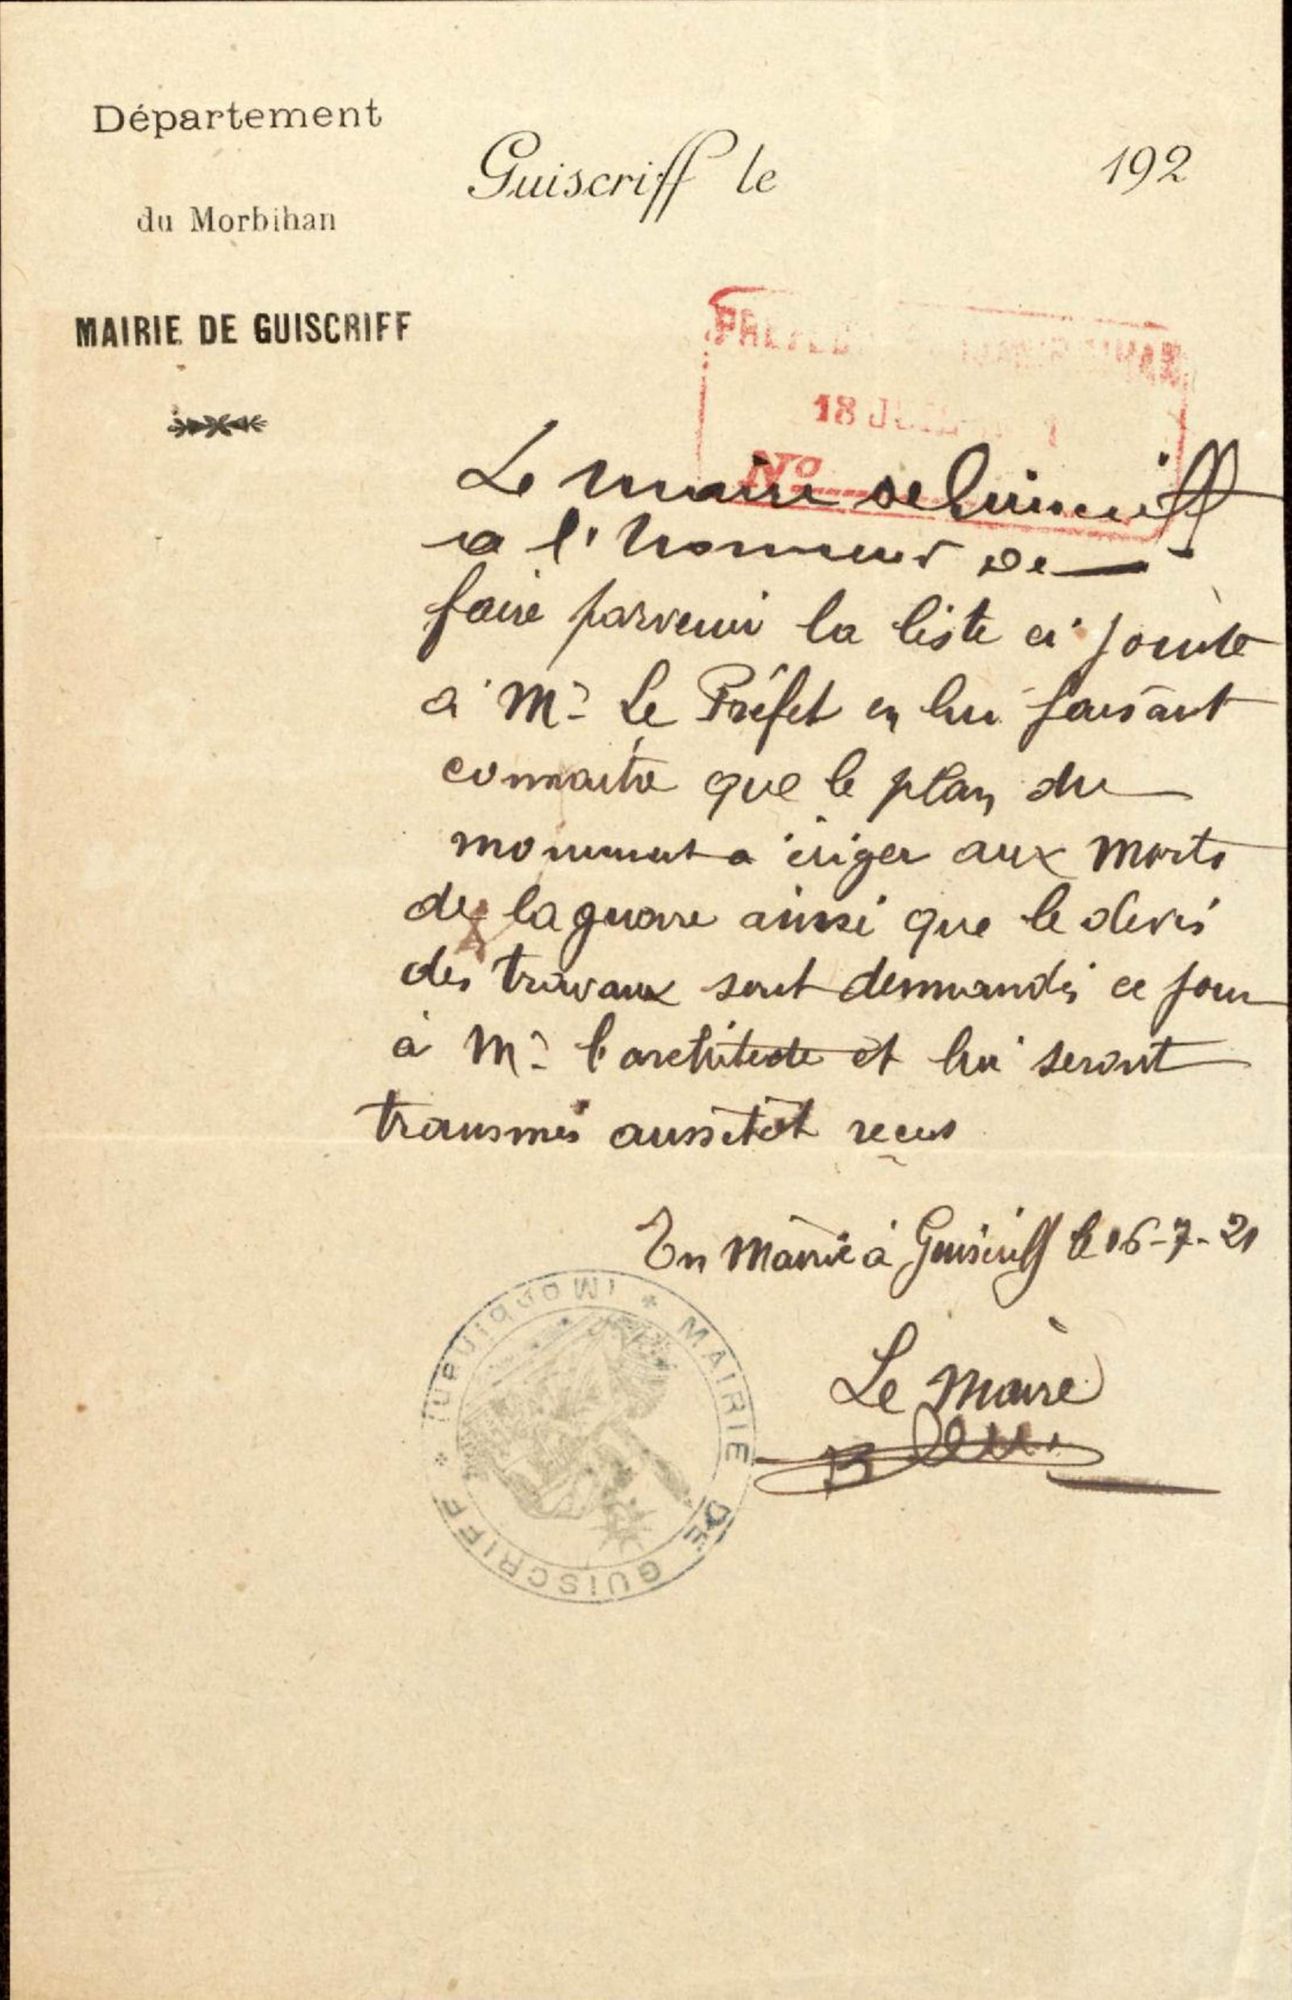 Département
du Morbihan
MAIRIE DE GUISCRIFF
Guiscriff le 192
18 JUIL
Nº
Le maire de Guiscriff
a l'honneur de
faire parvenir la liste ci jointe
à Mr Le Préfet en lui faisant
connaitre que le plan du
monument a ériger aux morts
de la guerre ainsi que le devis
des travaux sont demmandés ce jour
à Mr l'architecte et lui seront
transmis aussitôt reçus
En Mairie à Guiscriff le 16-7-21
Le Maire
MAIRIE DE GUISCRIFF * (Morbihan) *